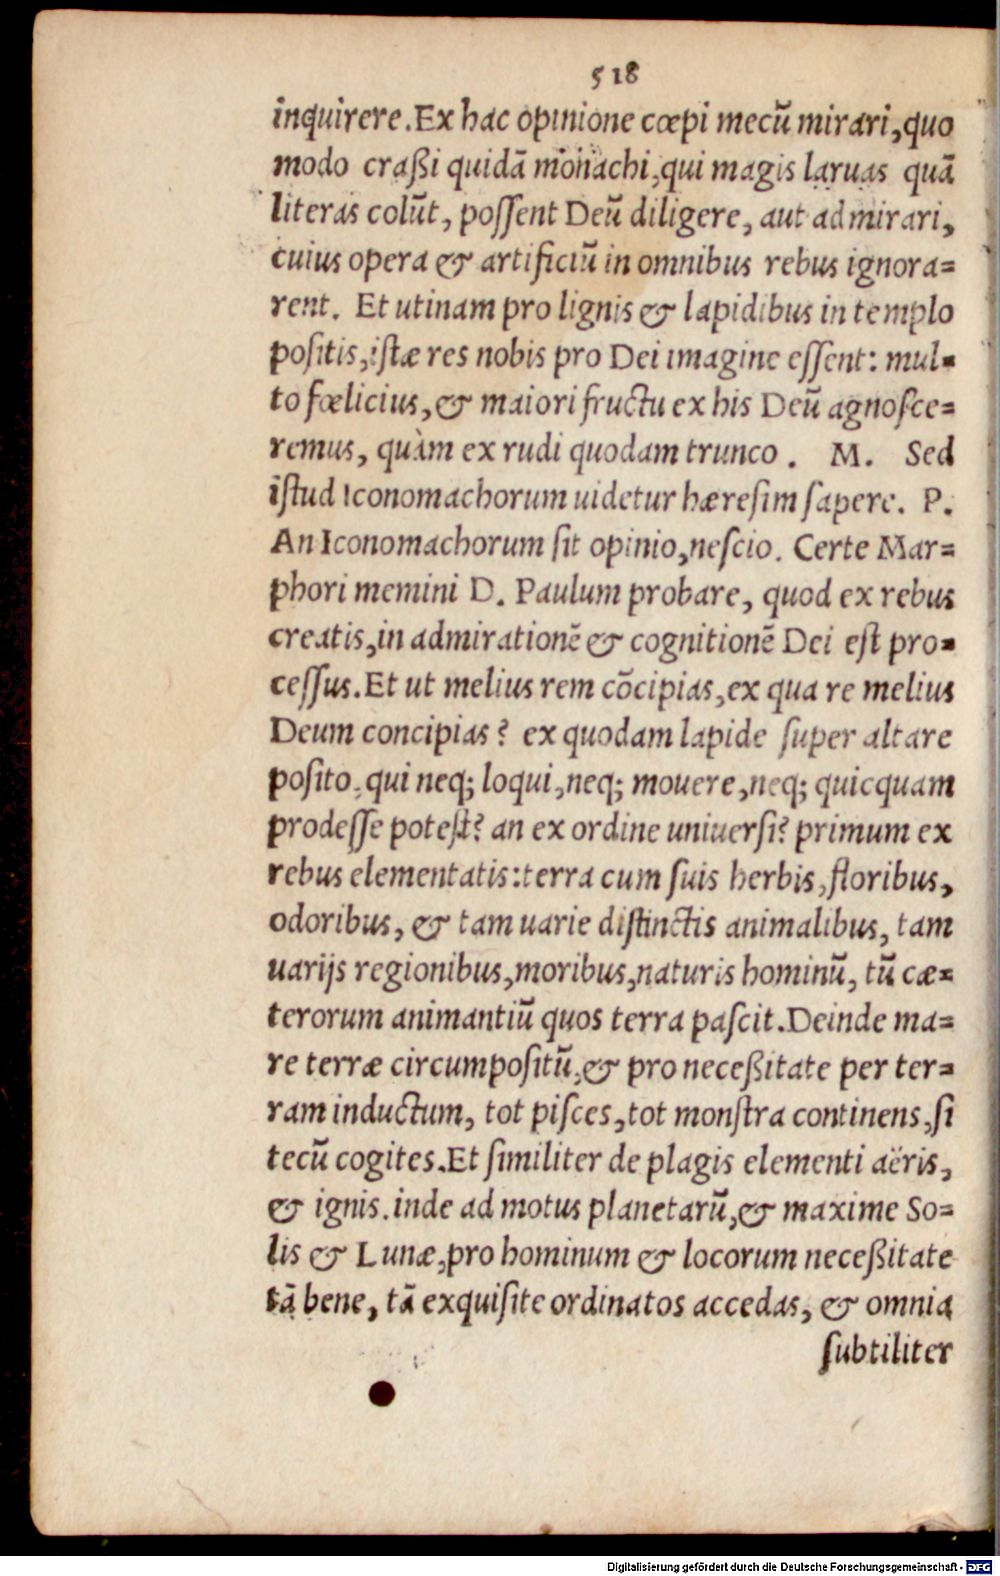 518
inquirere. Ex hac opinione cœpi mecū mirari, quo
modo craßi quidā monachi, qui magis laruas quā
literas colūt, poſſent Deū diligere, aut admirari,
cuius opera & artificiū in omnibus rebus ignora=
rent. Et utinam pro lignis & lapidibus in templo
poſitis, iſtæ res nobis pro Dei imagine eſſent: mul=
to fœlicius, & maiori fructu ex his Deū agnoſce=
remus, quàm ex rudi quodam trunco. M. Sed
iſtud Iconomachorum uidetur hæreſim ſapere. P.
An Iconomachorum ſit opinio, neſcio. Certe Mar=
phori memini D. Paulum probare, quod ex rebus
creatis, in admirationē & cognitionē Dei eſt pro=
ceſſus. Et ut melius rem cōcipias, ex qua re melius
Deum concipias? ex quodam lapide ſuper altare
poſito, qui neq; loqui, neq; mouere, neq; quicquam
prodeſſe poteſt? an ex ordine uniuerſi? primum ex
rebus elementatis: terra cum ſuis herbis, floribus,
odoribus, & tam uarie diſtinctis animalibus, tam
uarijs regionibus, moribus, naturis hominū, tū cæ=
terorum animantiū quos terra paſcit. Deinde ma=
re terræ circumpoſitū, & pro neceßitate per ter=
ram inductum, tot piſces, tot monſtra continens, ſi
tecū cogites. Et ſimiliter de plagis elementi aëris,
& ignis. inde ad motus planetarū, & maxime So=
lis & Lunæ, pro hominum & locorum neceßitate
tā bene, tā exquiſite ordinatos accedas, & omnia
ſubtiliter
Digitalisierung gefördert durch die Deutsche Forschungsgemeinschaft - DFG